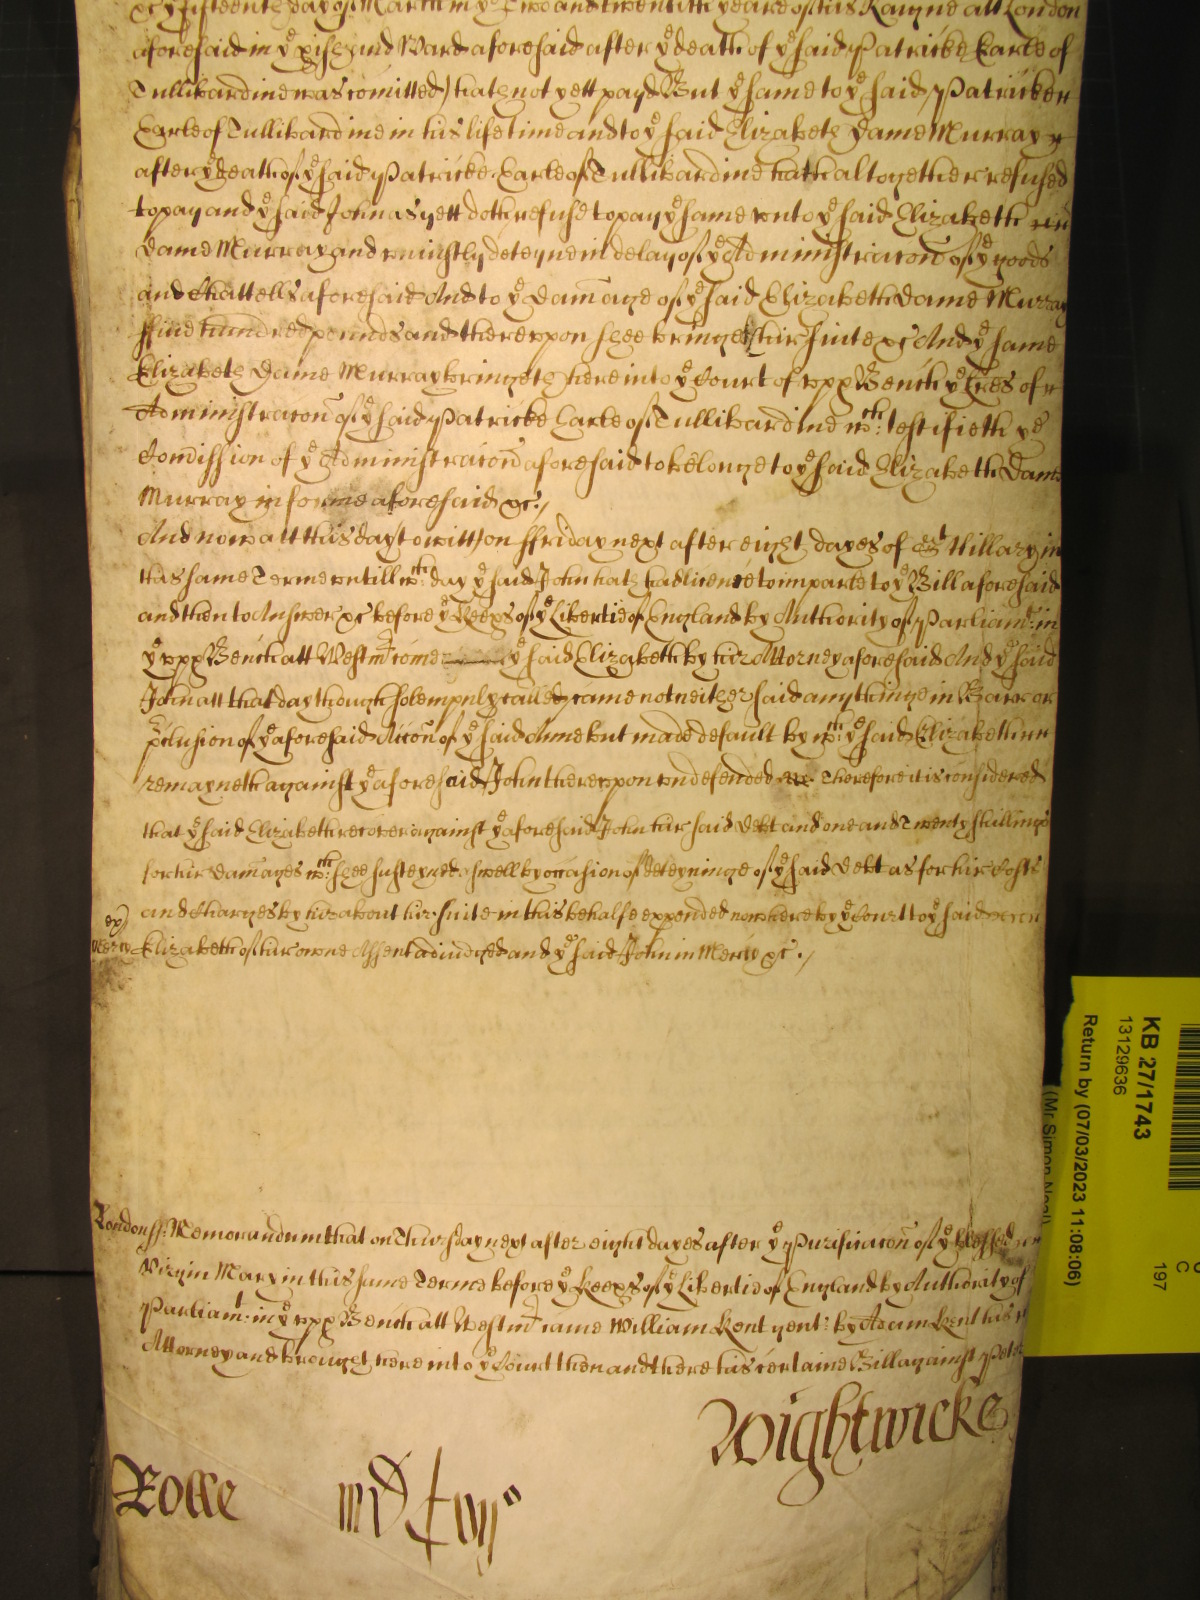 &c yᵉ fifteenth day of March in yᵉ Two and twentith yeare of his Raigne att London
aforesaid in yᵉ pish and Ward aforesaid after yᵉ death of yᵉ said Patricke Earle of
Tullibardine was comitted) hath not yett payd But yᵉ same to yᵉ said Patricke
Earle of Tullibardine in his life time and to yᵉ said Elizabeth Dame Murray
after yᵉ death of yᵉ said Patricke Earle of Tullibardine hath altogether refused
to pay and yᵉ said John as yett doth refuse to pay yᵉ same vnto yᵉ said Elizabeth
Dame Murray and vniustly deteyne in delay of yᵉ Administracon of yᵉ goods
and Chattells aforesaid And to yᵉ Damage of yᵉ said Elizabeth Dame Murray
ffiue hundred pounds and therevpon shee bringeth hir suite &c And yᵉ same
Elizabeth Dame Murray bringeth here into yᵉ Court of vpp Bench yᵉ Lres of
Administracon of yᵉ said Patricke Earle of Tullibardine wᶜʰ: testifieth yᵉ
Comission of yᵉ Administracon aforesaid to belonge to yᵉ said Elizabeth Dame
Murray in forme aforesaid &c./
And now att this day (to witt) on ffriday next after eight dayes of Sᵗ Hillary in
this same Terme vntill wᶜʰ: day yᵉ said John hath had licence to imparle to yᵉ Bill aforesaid
and then to Answer &c before yᵉ Keeps of yᵉ Libertie of England by Authority of Parliamᵗ: in
yᵉ vpp Bench att Westmʳ come yᵉ said Elizabeth by hir Attorney aforesaid And yᵉ said
John att that day though solempnly called came not neither said any thinge in Barr or
pclusion of yᵉ aforesaid Accon of yᵉ said Anne but made default by wᶜʰ: yᵉ said Elizabeth
remayneth against yᵉ aforesaid John therevpon vndefended Therefore it is considered
that yᵉ said Elizabeth recover against yᵉ aforesaid John hir said Debt and one and Twenty shillings
for hir Damages wᶜʰ: shee susteyned aswell by occasion of deteyninge of yᵉ said Debt as for hir Costs
and Charges by hir about hir suite in this behalfe expended now here by yᵉ Court to yᵉ said
Elizabeth of hir owne Assent adiudged and yᵉ said John in Mercy &c./
Mercy
London ss: Memorandum that on Thursday next after eight dayes after yᵉ Purificacon of yᵉ blessed
Virgin Mary in this same Terme before yᵉ Keeps of yᵉ Libertie of England by Authority of
Parliamᵗ: in yᵉ vpp Bench att Westmʳ came William Kent gent: by Adam Kent his
Attorney and brought here into yᵉ Court then and there his certaine Bill against Peter
Wightwicke
Rolle
KB 27/1743
13129636
Return by (07/03/2023 11:08:06)
(Mr Simon Neal)
C
197